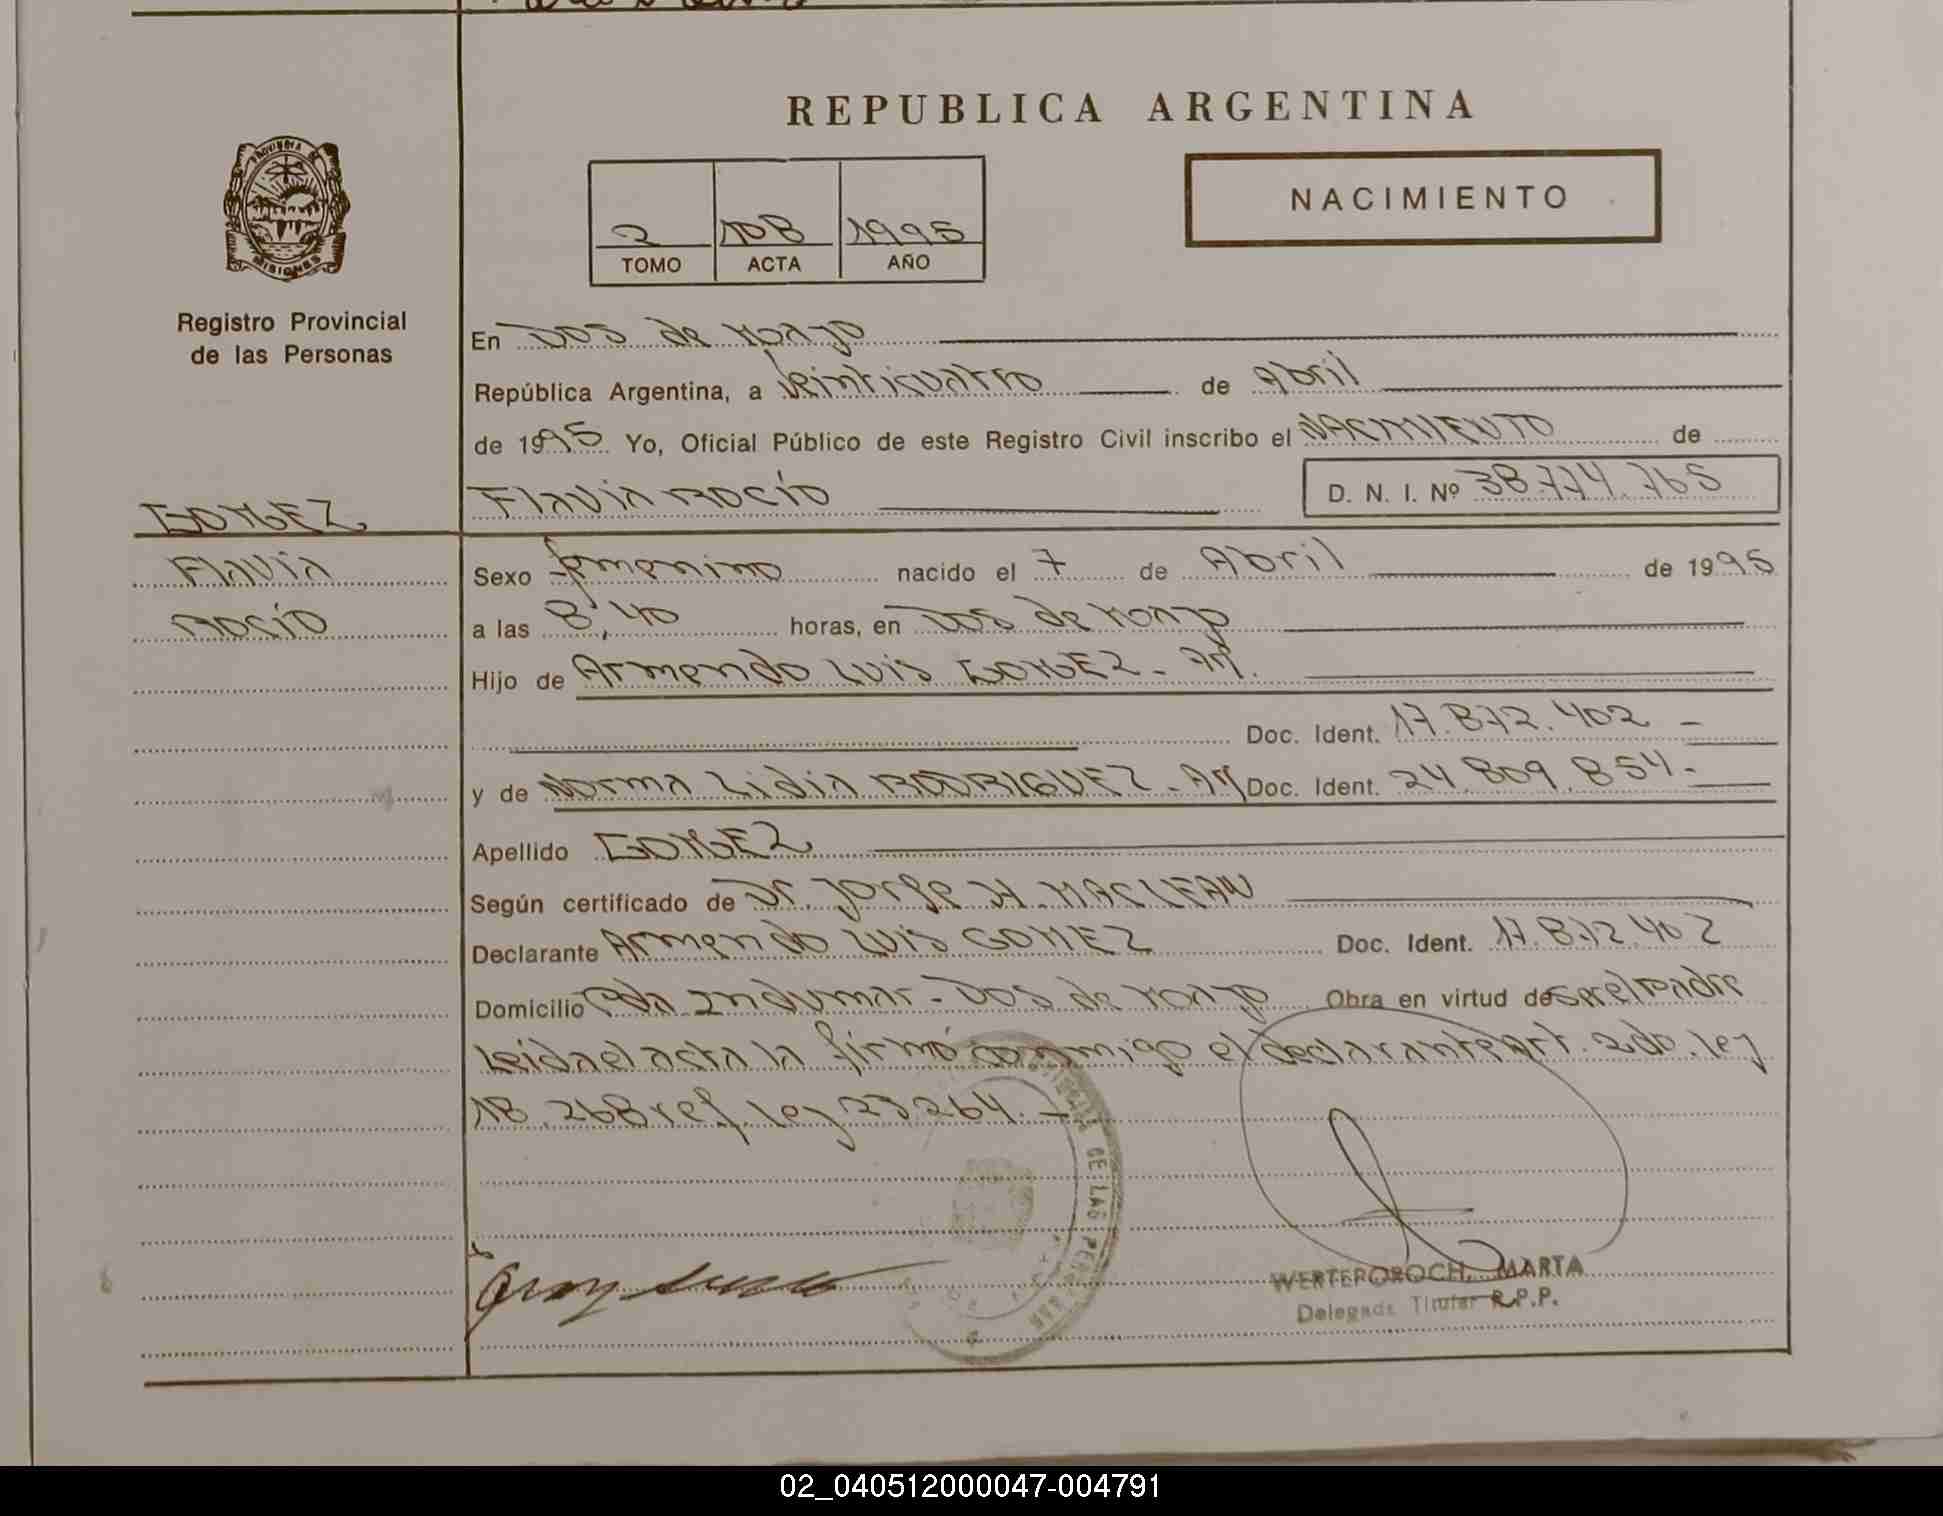 REPUBLICA ARGENTINA
PROVINCIA DE
MISIONES
Registro Provincial
de las Personas
2 108 1995
TOMO ACTA AÑO
NACIMIENTO
En Dos de Mayo
República Argentina, a Veinticuatro de Abril
de 1995 Yo, Oficial Público de este Registro Civil inscribo el NACIMIENTO de
Flavia Rocío D. N. I. Nº 38.774.765
GOMEZ
Flavia
Rocío
Sexo femenino nacido el 7 de Abril de 1995
a las 8,40 horas, en Dos de Mayo
Hijo de Armando Luis GOMEZ - Arg.
Doc. Ident. 17.872.402 -
y de Norma Lidia RODRIGUEZ - Arg Doc. Ident. 24.809.854.-
Apellido GOMEZ
Según certificado de Dr. Jorge H. MACLEAN
Declarante Armando Luis GOMEZ Doc. Ident. 17.872.402
Domicilio Pda Indumar - Dos de Mayo Obra en virtud de ser el Padre
Leida el acta la firmó conmigo el declarante Art. 2do. ley
18.268 ref. ley 23264. -
DE LAS PERSONAS
WERTEPOROCH, MARTA
Delegada Titular R.P.P.
02_040512000047-004791